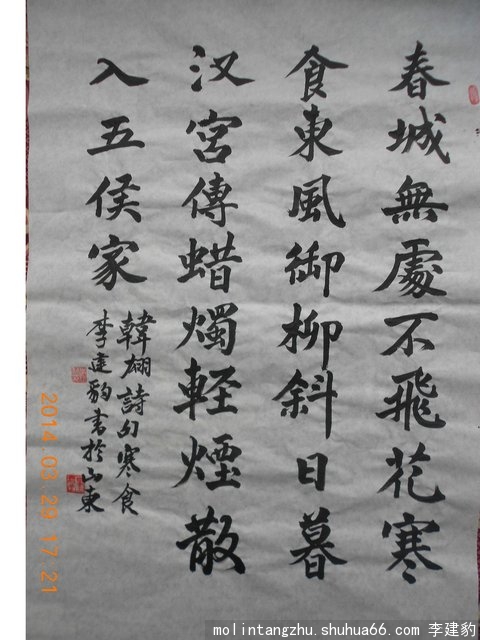 春城無處不飛花寒
食東風御柳斜日暮
汉宮傳蜡燭輕煙散
入五侯家
韓翃詩句寒食
李建豹書於山東
2014.03.29 17:21
molintangzhu.shuhua66.com 李建豹